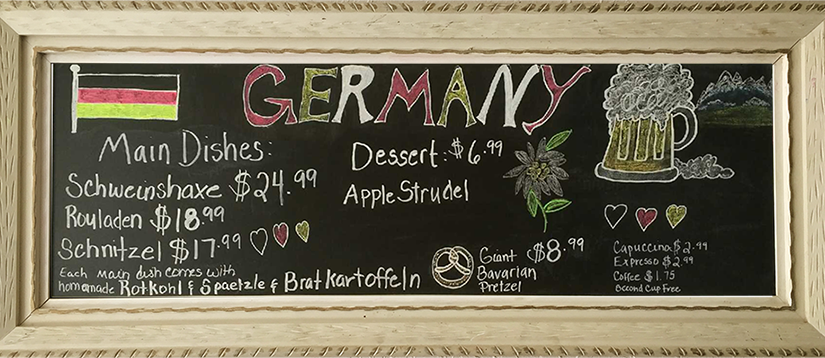 GERMANY
Main Dishes:
Schweinshaxe $24.99
Rouladen $18.99
Schnitzel $17.99
Each main dish comes with
homemade Rotkohl & Spaetzle & Bratkartoffeln
Dessert: $6.99
Apple Strudel
Giant $8.99
Bavarian
Pretzel
Capuccino $2.99
Expresso $2.99
Coffee $1.75
Second Cup Free